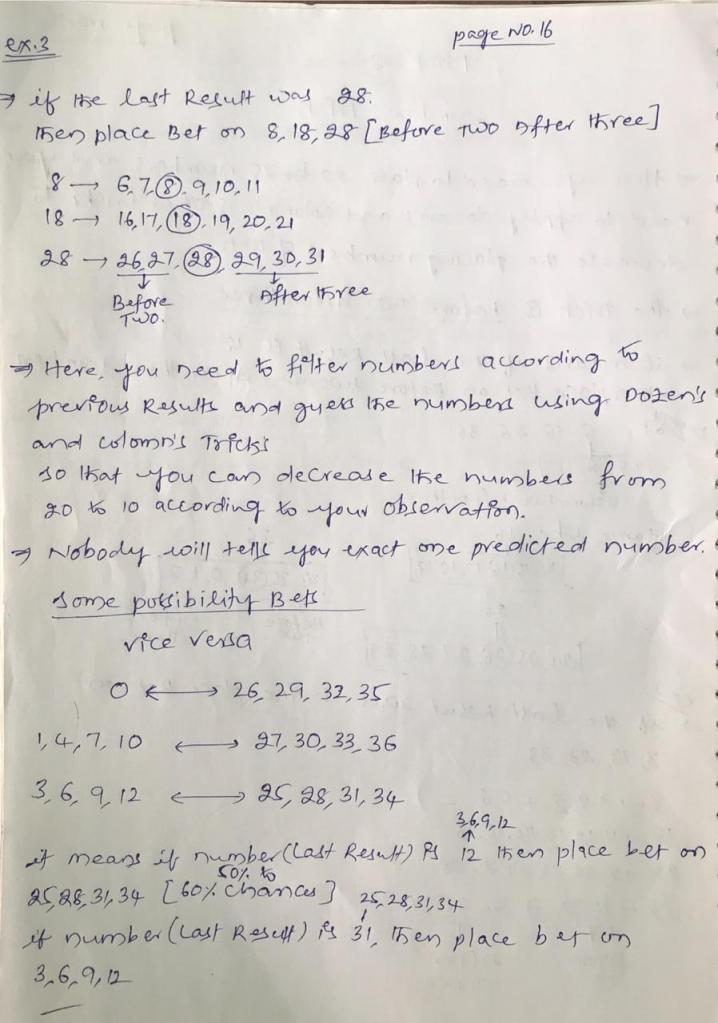 page NO.16
ex.3
→ if the last Result was 28.
then place Bet on 8,18,28 [Before Two After three]
8 → 6,7,(8),9,10,11
18 → 16,17,(18),19,20,21
28 → 26,27,(28),29,30,31
↓ ↓
Before After three
Two.
⇒ Here, you need to filter numbers according to
previous Results and guess the numbers using Dozen's
and colomn's Tricks
so that you can decrease the numbers from
20 to 10 according to your observation.
⇒ Nobody will tells you exact one predicted number.
Some possibility Bets
vice versa
0 ↔ 26, 29, 32, 35
1,4,7,10 ↔ 27,30,33,36
3,6,9,12 ↔ 25,28,31,34
3,6,9,12
↑
it means if number(Last Result) is 12 then place bet on
50% to
25,28,31,34 [60% chances] 25,28,31,34
if number(Last Result) is 31, then place bet on
3,6,9,12